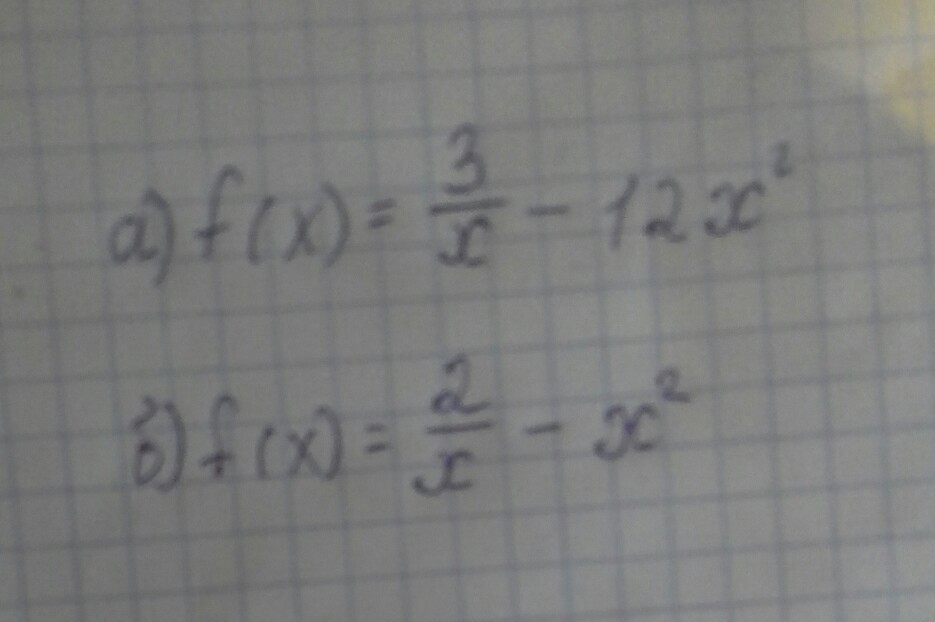 а) f(x) = 3/x - 12x²
б) f(x) = 2/x - x²